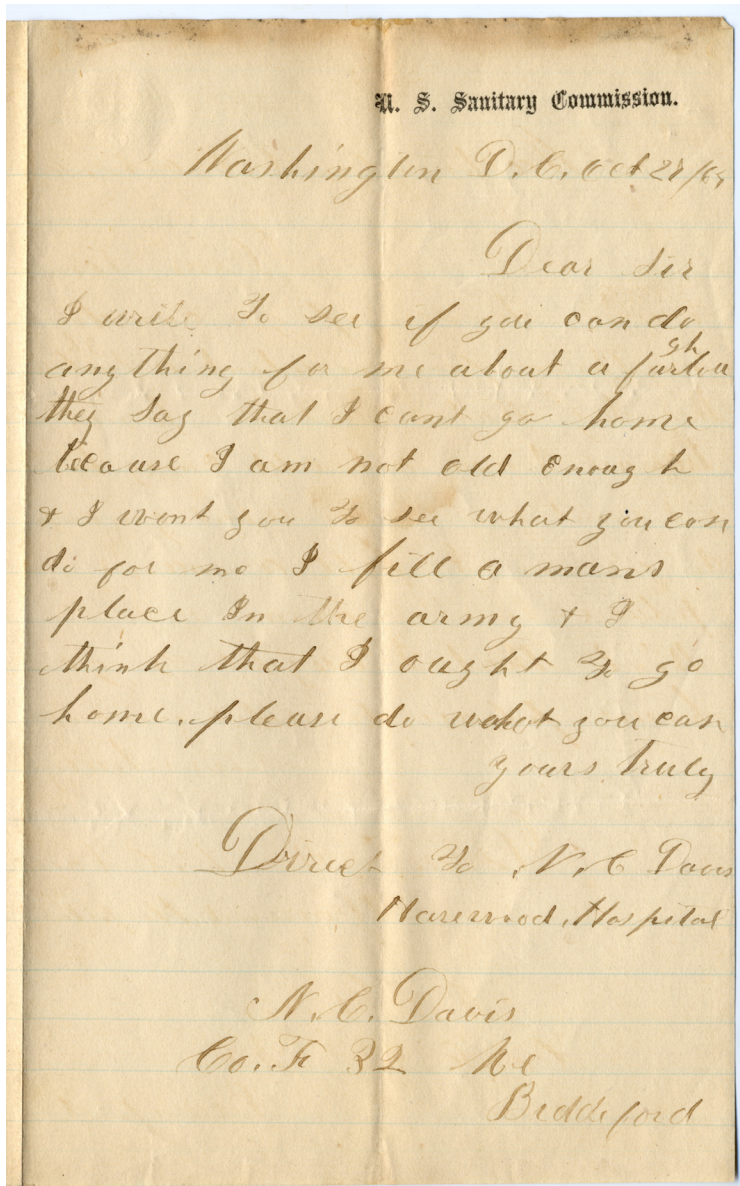 U. S. Sanitary Commission.
Washington D.C. Oct 27/64
Dear Sir
I write To see if you can do
anything for me about a furlough
they say that I cant go home
because I am not old enough
& I want you To see what you can
do for me I fill a mans
place In the army & I
think that I ought To go
home. please do what you can
yours Truly
Direct To N. C Davis
Harewood. Hospital
N. C. Davis
Co. F 32 Me
Biddeford